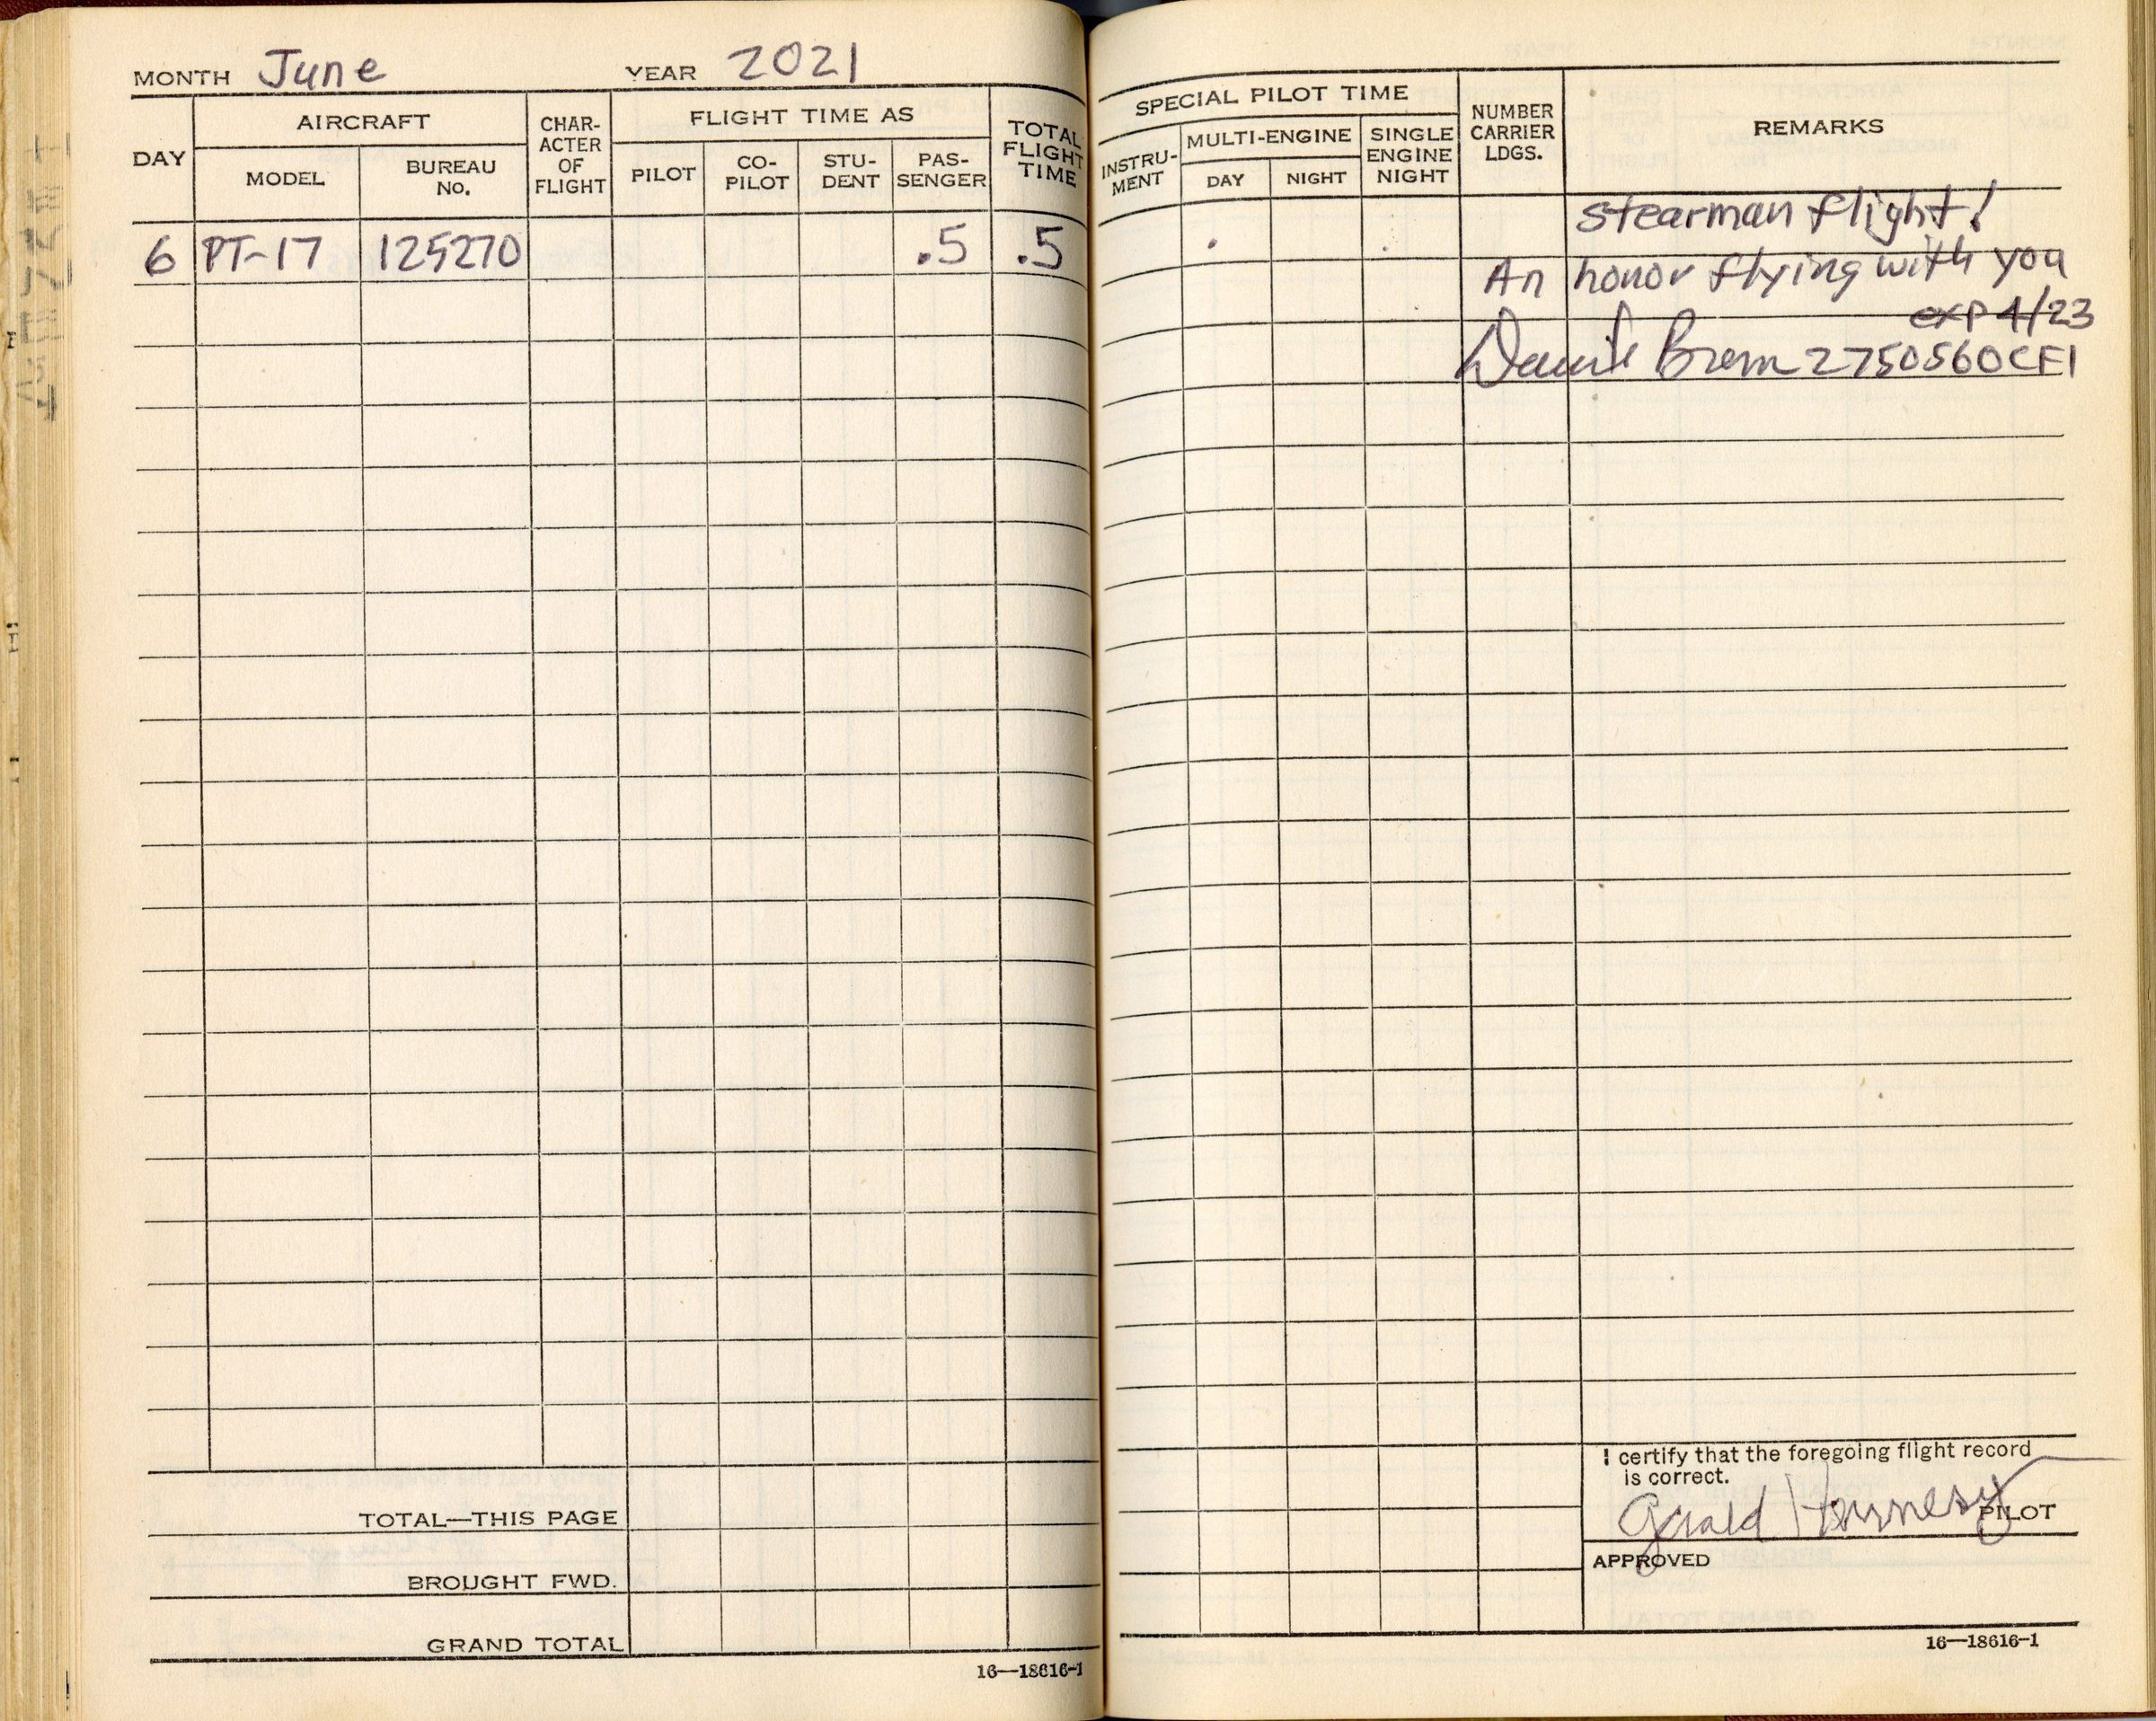 MONTH June YEAR 2021
DAY
AIRCRAFT
MODEL
BUREAU
No.
CHAR-
ACTER
OF
FLIGHT
FLIGHT TIME AS
PILOT
CO-
PILOT
STU-
DENT
PAS-
SENGER
TOTAL
FLIGHT
TIME
6 PT-17 125270 .5 .5
TOTAL—THIS PAGE
BROUGHT FWD.
GRAND TOTAL
16—18616-1
SPECIAL PILOT TIME
INSTRU-
MENT
MULTI-ENGINE
DAY
NIGHT
SINGLE
ENGINE
NIGHT
NUMBER
CARRIER
LDGS.
REMARKS
Stearman flight!
An honor flying with you
exp 4/23
2750560CFI
I certify that the foregoing flight record
is correct.
Gerald Hennesy
PILOT
APPROVED
16—18616-1